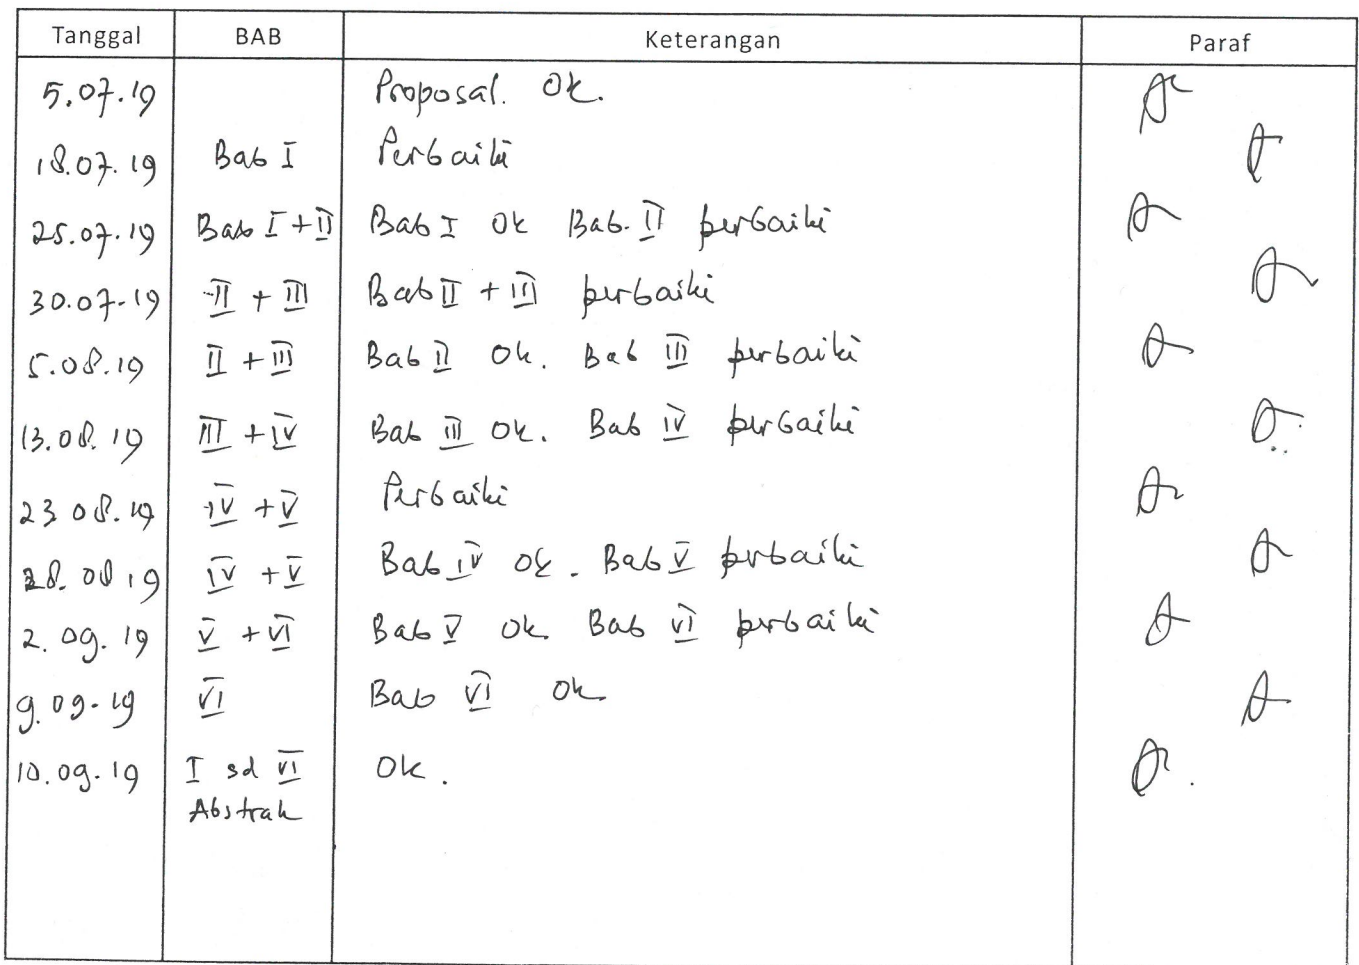 Tanggal BAB Keterangan Paraf
5.07.19 Proposal. Ok.
18.07.19 Bab I Perbaiki
25.07.19 Bab I + II Bab I Ok Bab. II perbaiki
30.07.19 II + III Bab II + III perbaiki
5.08.19 II + III Bab II Ok. Bab III perbaiki
13.08.19 III + IV Bab III Ok. Bab IV perbaiki
23.08.19 IV + V Perbaiki
28.08 19 IV + V Bab IV Ok. Bab V perbaiki
2.09.19 V + VI Bab V Ok. Bab VI perbaiki
9.09.19 VI Bab VI Ok
10.09.19 I sd VI Ok.
Abstrak